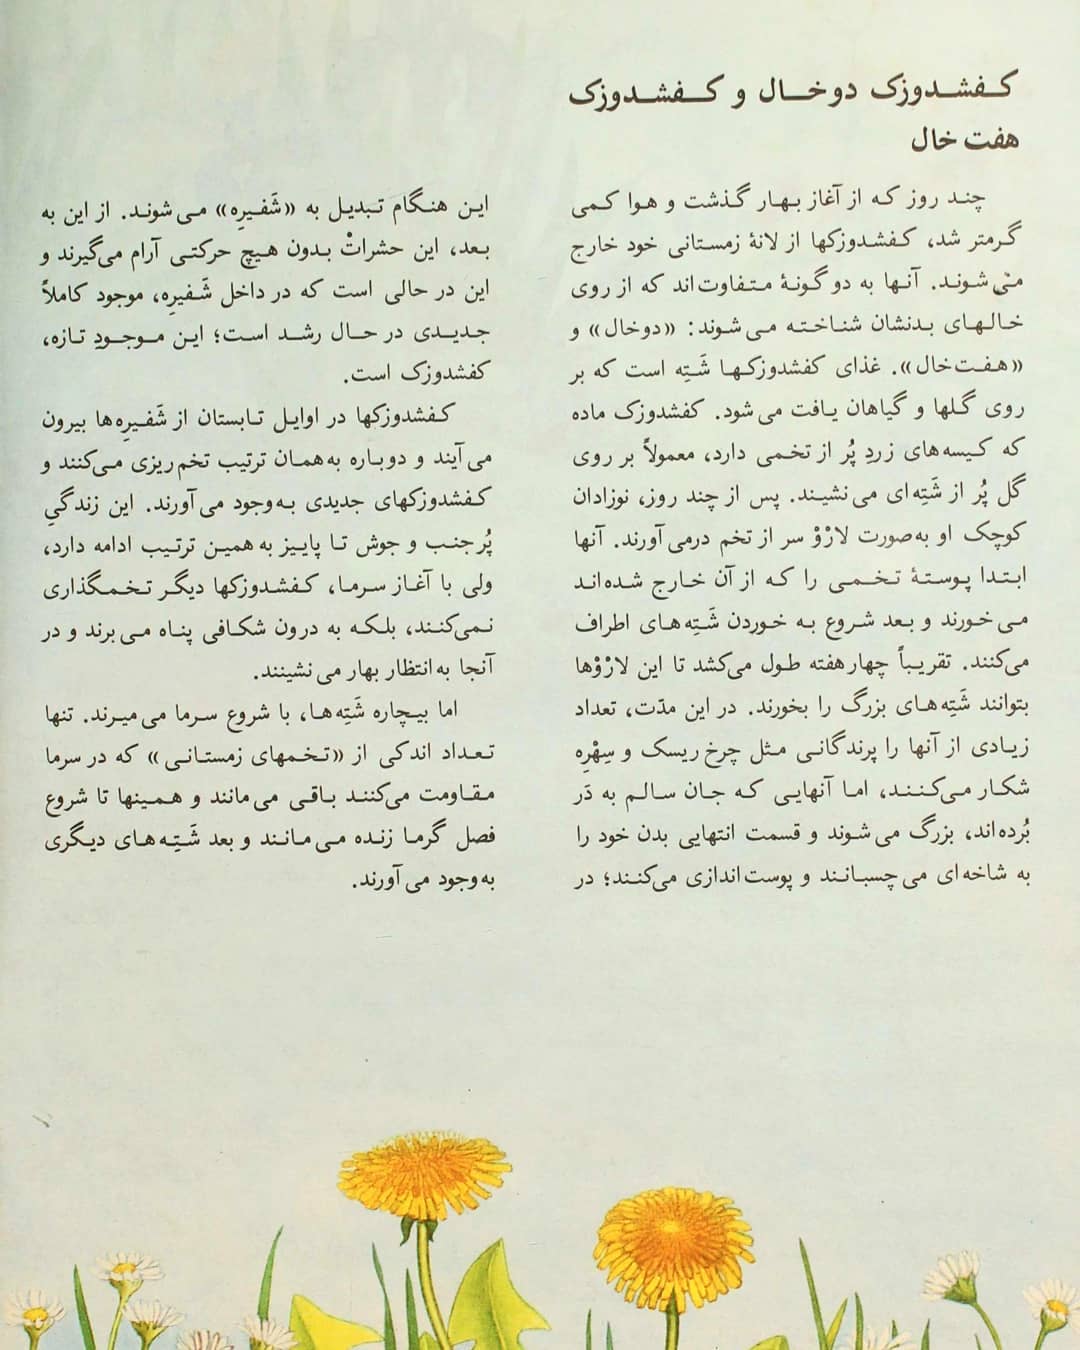 کفشدوزک دوخال و کفشدوزک
هفت خال
چند روز که از آغاز بهار گذشت و هوا کمی
گرمتر شد، کفشدوزکها از لانهٔ زمستانی خود خارج
می‌شوند. آنها به دو گونهٔ متفاوت‌اند که از روی
خالهای بدنشان شناخته می‌شوند: «دوخال» و
«هفت‌خال». غذای کفشدوزکها شَتِه است که بر
روی گلها و گیاهان یافت می‌شود. کفشدوزک ماده
که کیسه‌های زردِ پُر از تخمی دارد، معمولاً بر روی
گل پُر از شَتِه‌ای می‌نشیند. پس از چند روز، نوزادان
کوچک او به‌صورت لارْوْ سر از تخم درمی‌آورند. آنها
ابتدا پوستهٔ تخمی را که از آن خارج شده‌اند
می‌خورند و بعد شروع به خوردن شَتِه‌های اطراف
می‌کنند. تقریباً چهارهفته طول می‌کشد تا این لارْوْها
بتوانند شَتِه‌های بزرگ را بخورند. در این مدّت، تعداد
زیادی از آنها را پرندگانی مثل چرخ ریسک و سِهْرِه
شکار می‌کنند، اما آنهایی که جان سالم به دَر
بُرده‌اند، بزرگ می‌شوند و قسمت انتهایی بدن خود را
به شاخه‌ای می‌چسبانند و پوست‌اندازی می‌کنند؛ در
این هنگام تبدیل به «شَفیرِه» می‌شوند. از این به
بعد، این حشراتْ بدون هیچ حرکتی آرام می‌گیرند و
این در حالی است که در داخل شَفیرِه، موجود کاملاً
جدیدی در حال رشد است؛ این موجودِ تازه،
کفشدوزک است.
کفشدوزکها در اوایل تابستان از شَفیرِه‌ها بیرون
می‌آیند و دوباره به‌همان ترتیب تخم‌ریزی می‌کنند و
کفشدوزکهای جدیدی به‌وجود می‌آورند. این زندگیِ
پُرجنب و جوش تا پاییز به همین ترتیب ادامه دارد،
ولی با آغاز سرما، کفشدوزکها دیگر تخمگذاری
نمی‌کنند، بلکه به درون شکافی پناه می‌برند و در
آنجا به‌انتظار بهار می‌نشینند.
اما بیچاره شَتِه‌ها، با شروع سرما می‌میرند. تنها
تعداد اندکی از «تخمهای زمستانی» که در سرما
مقاومت می‌کنند باقی می‌مانند و همینها تا شروع
فصل گرما زنده می‌مانند و بعد شَتِه‌های دیگری
به‌وجود می‌آورند.